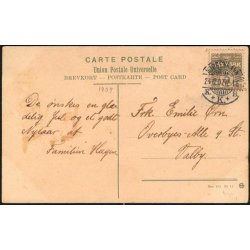 CARTE POSTALE
Union Postale Universelle
BREVKORT - POSTKARTE - POST CARD
1959
De ønskes en glæ-
delig Jul og et godt
Nytaar af
Familien Hagen
Frk. Emilie Orn.
Overbyes-Alle 9 St.
Valby.